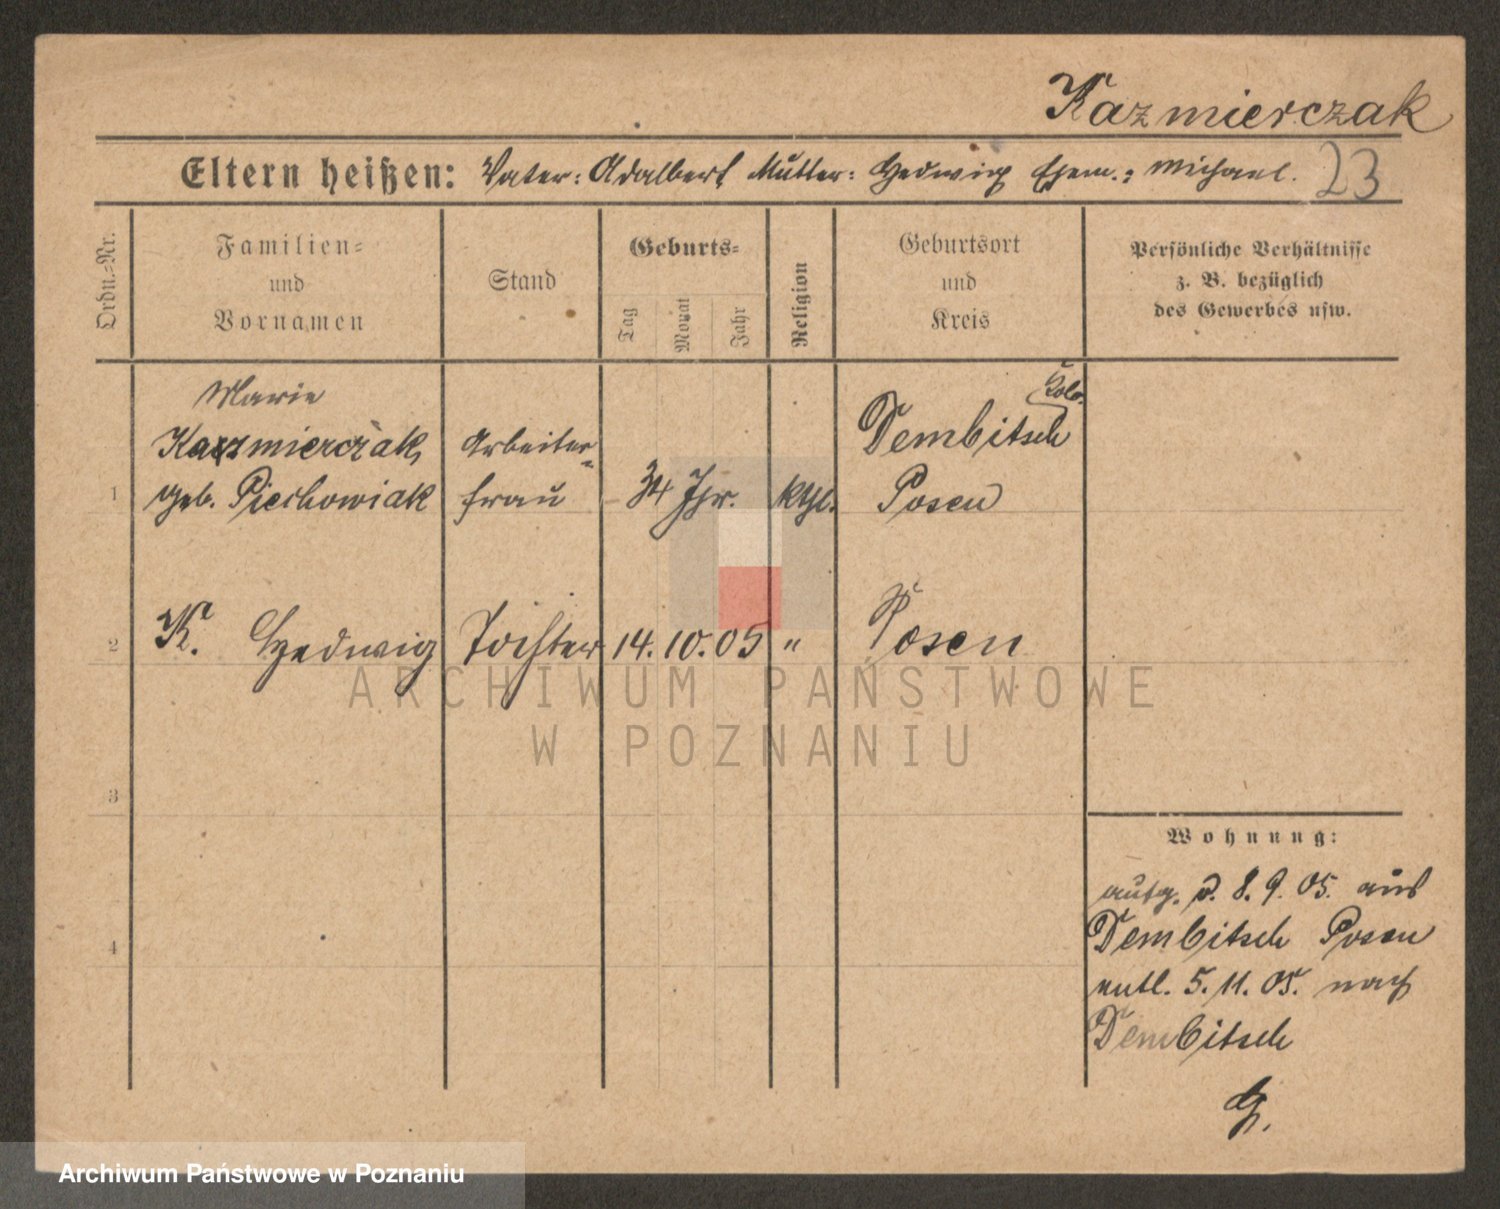 Kazmierczak
Eltern heißen: Vater: Adalbert Mutter: Hedwig Ehem.: Michael. 23
Ordn.=Nr.
Familien=
und
Vornamen
Stand
Geburts=
Tag
Monat
Jahr
Religion
Geburtsort
und
Kreis
Persönliche Verhältnisse
z. B. bezüglich
des Gewerbes usw.
1
Marie
Kazmierczak,
geb. Piechowiak
Arbeiter=
frau
34 Jhr.
kthl.
Dembitsch
Posen
2
K. Hedwig
Tochter
14. 10. 05
"
Posen
3
4
Wohnung:
aufg. d. 8. 9. 05. aus
Dembitsch Posen
entl. 5. 11. 05. nach
Dembitsch
G.
ARCHIWUM PAŃSTWOWE
W POZNANIU
Archiwum Państwowe w Poznaniu